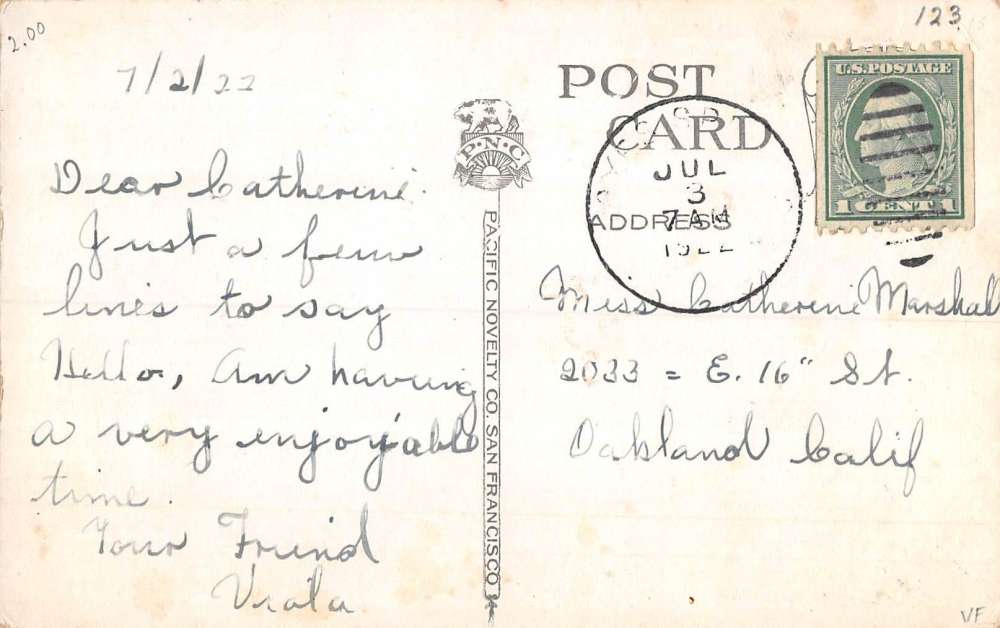 2.00
123
7/2/22
Dear Catherine.
Just a few
lines to say
Hello, Am having
a very enjoyable
time.
Your Friend
Viola
P.N.C.
PACIFIC NOVELTY CO. SAN FRANCISCO
POST
CARD
ADDRESS
JUL
3
7 AM
1922
U.S. POSTAGE
1 CENT 1
Miss Catherine Marshall
2033 = E. 16" St.
Oakland Calif
VF